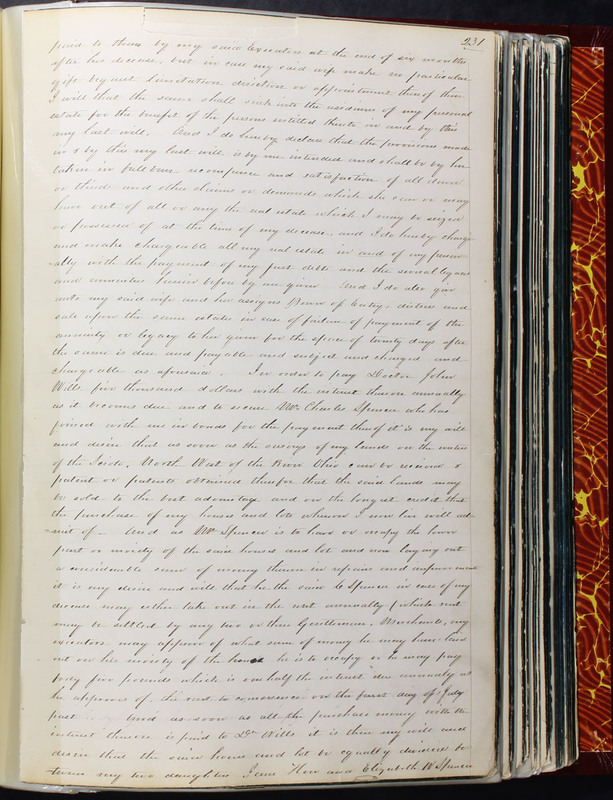 231
paid to them by my said Executors at the end of six months
after his decease, but in case my said wife make no particular
gift bequest limitation direction or appointment thereof then
I will that the same shall sink into the residuum of my personal
estate for the benefit of the persons entitled thereto in and by this
my last will. And I do hereby declare that the provisions made
in & by this my last will is by me intended and shall be by her
taken in full recompense and satisfaction of all dower
or thirds and other claims or demands which she can or may
have out of all or any the real estate which I may be seized
or possessed of at the time of my decease, and I do hereby charge
and make chargeable all my real estate in and of my person
-ally with the payment of my just debts and the several legacies
and annuities herein before by me given And I do also give
unto my said wife and her assigns Power of Entry, distress and
sale upon the same estates in case of failure of payment of the
annuity or legacy to her given for the space of twenty days after
the same is due and payable and subject and charged and
chargeable as aforesaid. In order to pay Doctor John
Wills five thousand dollars with the interest thereon annually
as it becomes due and to secure Mr. Charles Spencer who has
joined with me in bonds for the payment thereof it is my will
and desire that as soon as the surveys of my lands on the waters
of the Scioto, North West of the River Ohio can be received &
patent or patents obtained therefor that the said lands may
be sold to the best advantage and on the longest credit that
the purchase of my houses and lots whereon I now live will ad-
-mit of - And as Mr Spencer is to have or occupy the lower
part or moiety of the said houses and lot and now laying out
a considerable sum of money thereon in repairs and improvements
it is my desire and will that he the said C Spencer in case of my
decease may either take out in the rent annually (which rent
may be settled by any two or three Gentlemen, Merchants, my
executors may approve of what sum of money he may have laid
out on his moiety of the house he is to occupy or he may pay
forty five pounds which is one half the interest due annually as
he approves of, the rent to commence on the first day of July
past And as soon as all the purchase money with the
interest thereon is paid to Dr Wills it is then my will and
desire that the said house and lot be equally divided be
-tween my two daughters Jean How and Elizabeth W Spencer